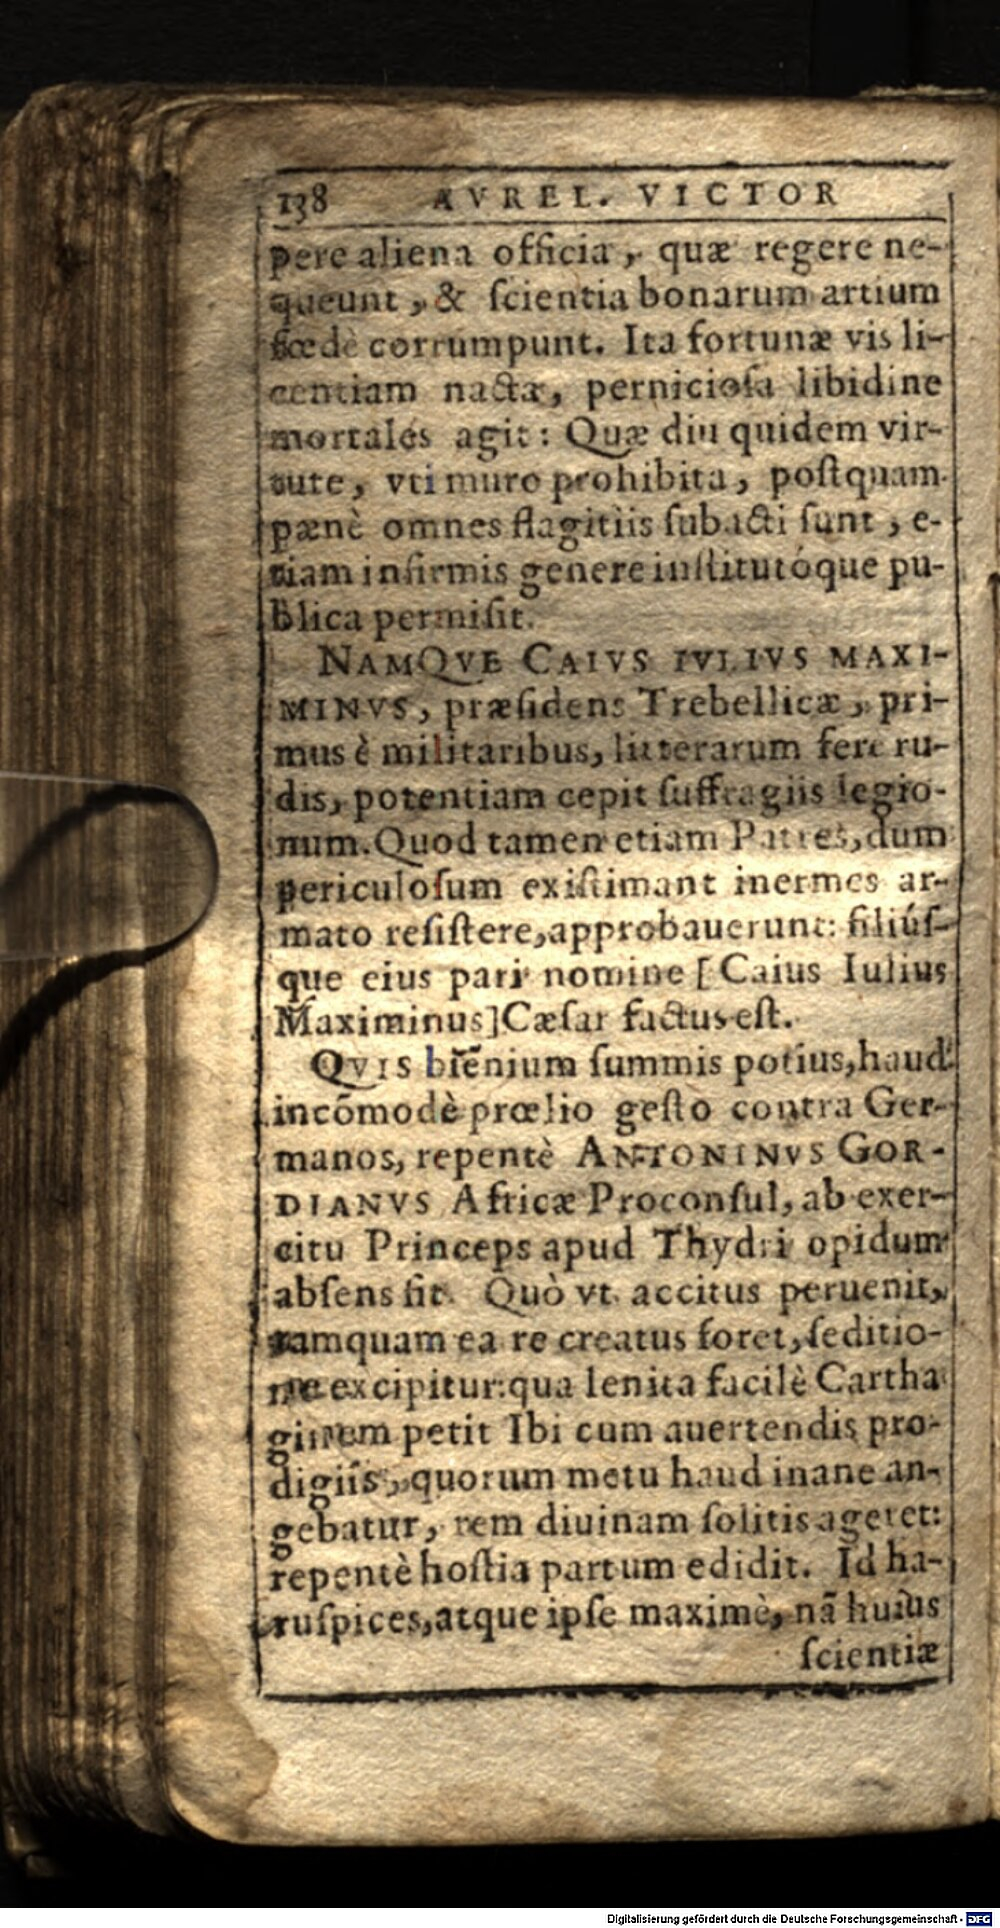 138 AVREL. VICTOR
pere aliena officia, quæ regere ne-
queunt, & ſcientia bonarum artium
fœdè corrumpunt. Ita fortunæ vis li-
centiam nacta, pernicioſa libidine
mortales agit: Quæ diu quidem vir-
tute, vti muro prohibita, poſtquam
pænè omnes flagitiis ſubacti ſunt, e-
tiam infirmis genere inſtitutóque pu-
blica permiſit.
NAMQVE CAIVS IVLIVS MAXI-
MINVS, præſidens Trebellicæ, pri-
mus è militaribus, litterarum fere ru-
dis, potentiam cepit ſuffragiis legio-
num. Quod tamen etiam Patres, dum
periculoſum exiſtimant inermes ar-
mato reſiſtere, approbauerunt: filiúſ-
que eius pari nomine [Caius Iulius
Maximinus] Cæſar factus eſt.
QVIS biēnium ſummis potius, haud
incōmodè prœlio geſto contra Ger-
manos, repentè ANTONINVS GOR-
DIANVS Africæ Proconſul, ab exer-
citu Princeps apud Thydri opidum
abſens fit. Quò vt accitus peruenit,
tamquam ea re creatus foret, ſeditio-
ne excipitur: qua lenita facilè Cartha
ginem petit Ibi cum auertendis pro-
digiis, quorum metu haud inane an-
gebatur, rem diuinam ſolitis ageret:
repentè hoſtia partum edidit. Id ha-
ruſpices, atque ipſe maximè, nā huius
ſcientiæ
Digitalisierung gefördert durch die Deutsche Forschungsgemeinschaft - DFG